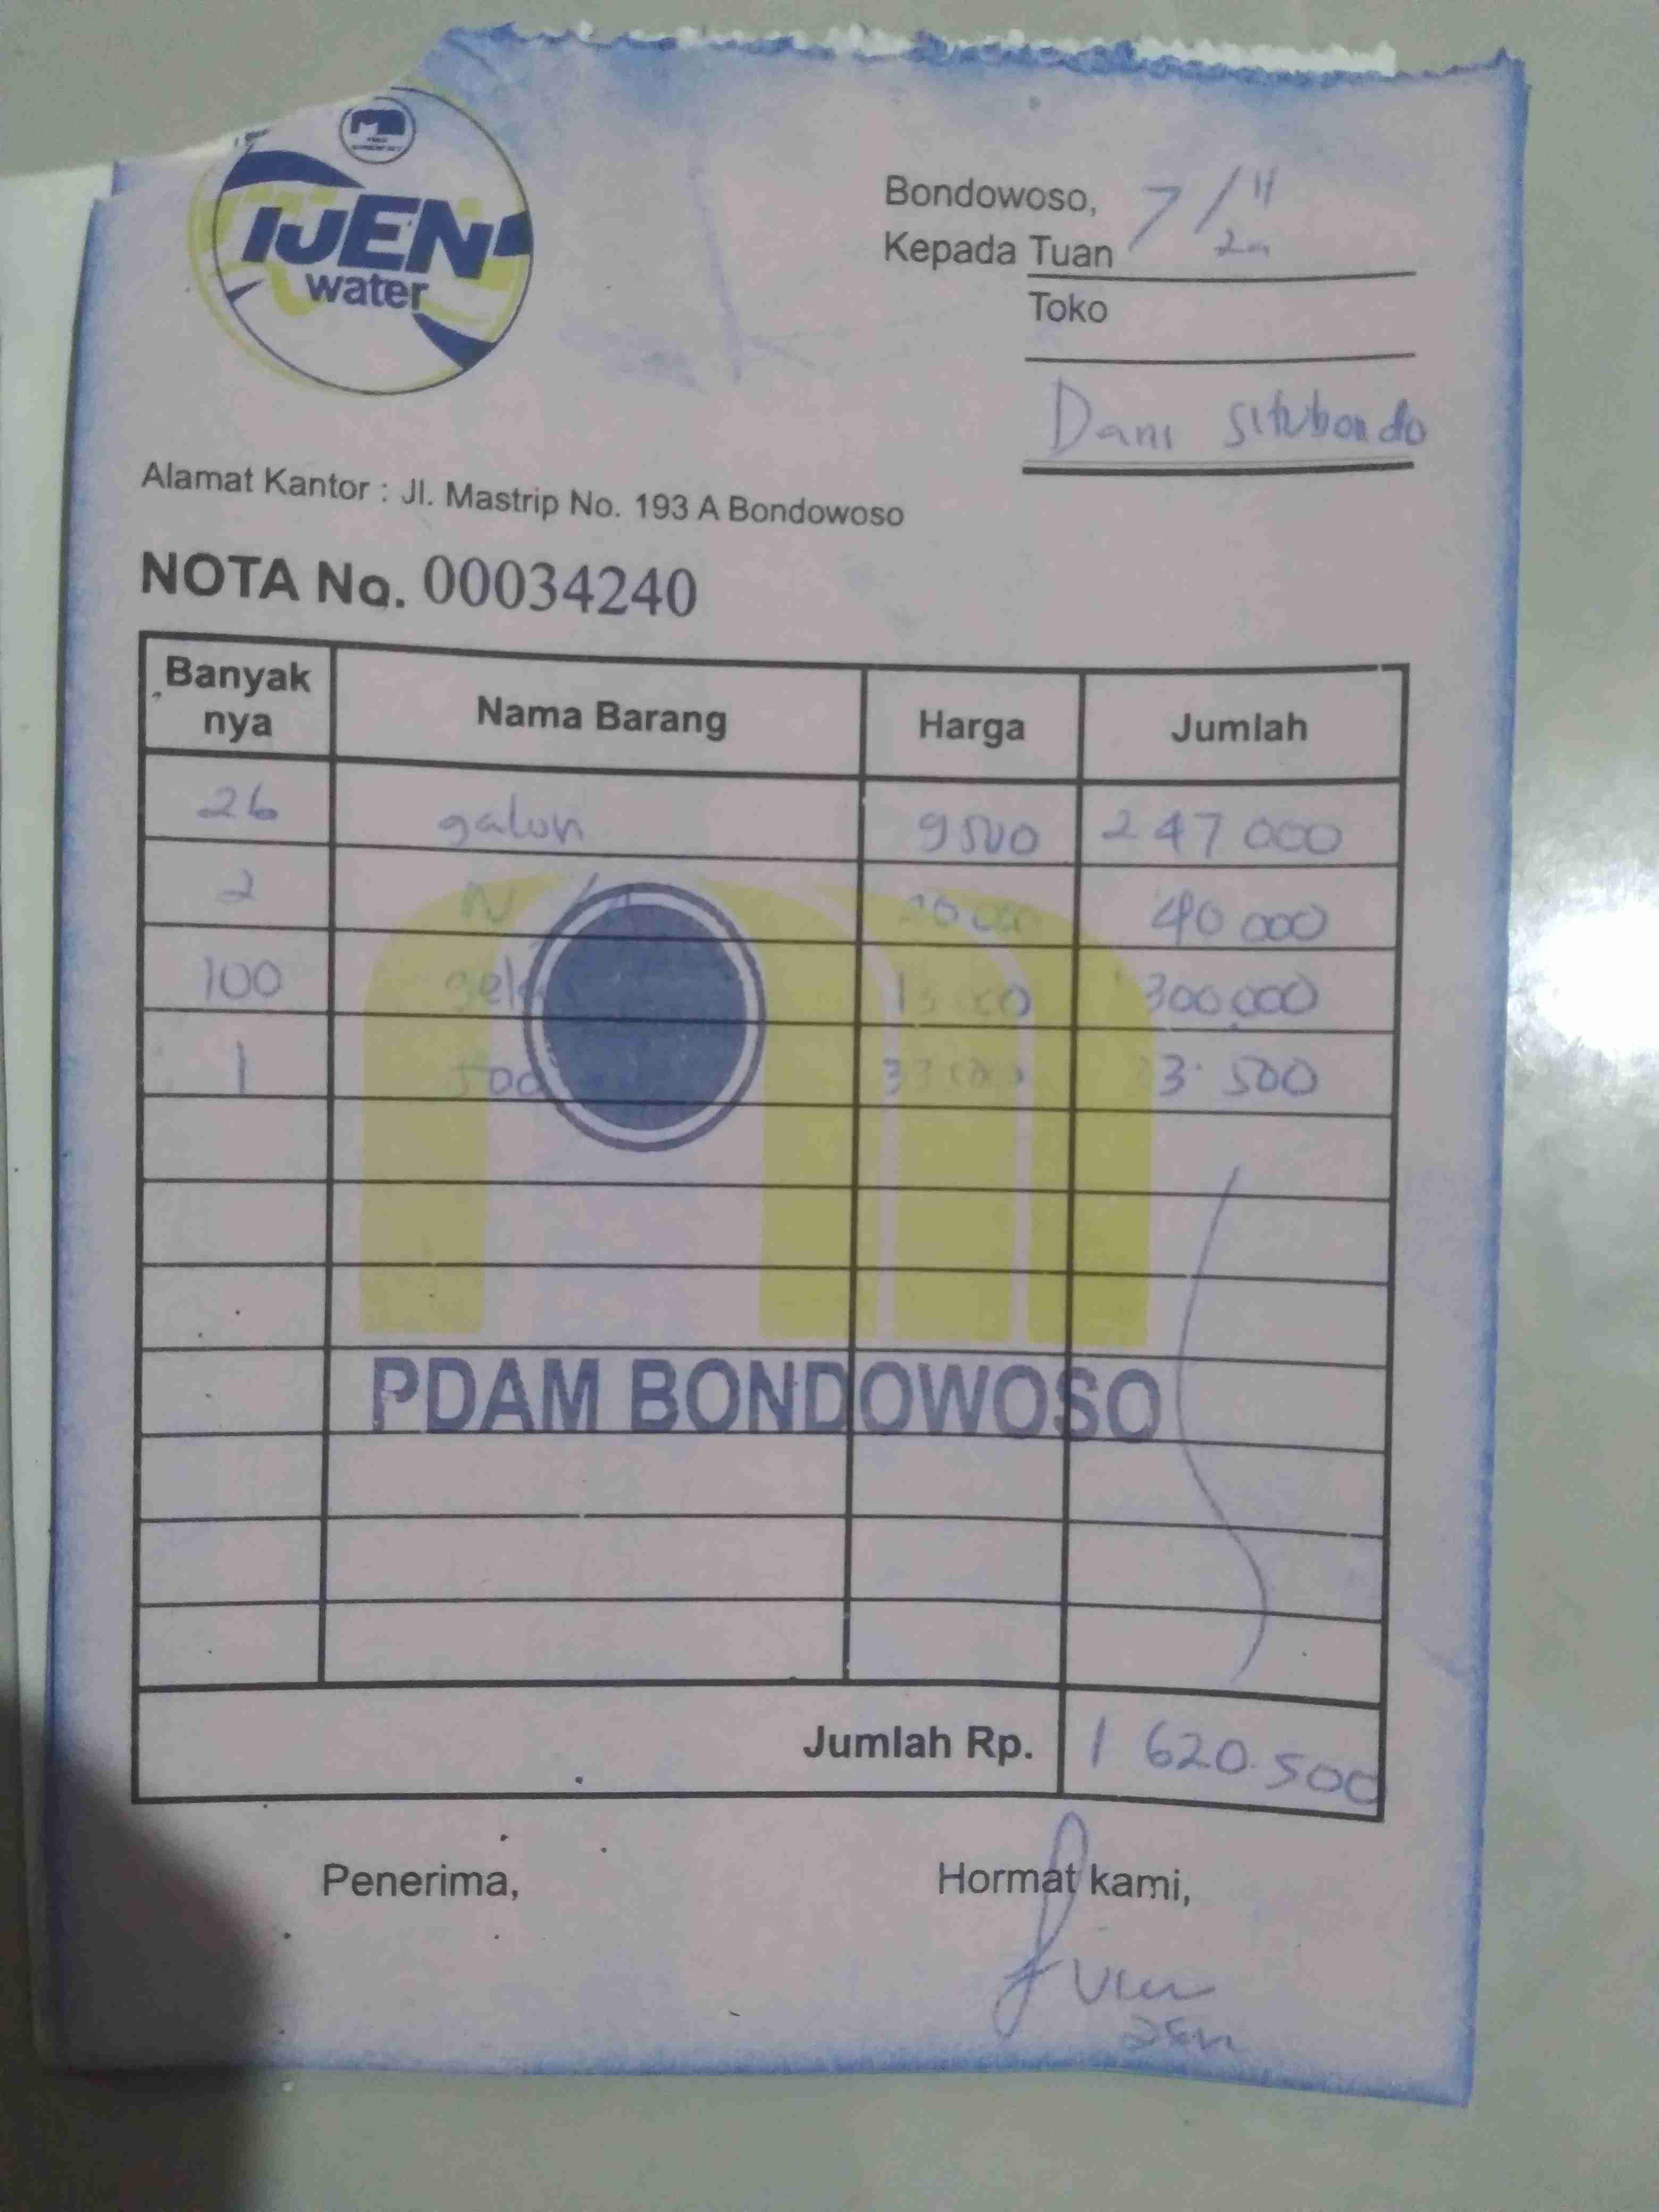 IJEN
water
Bondowoso, 7/11
Kepada Tuan
Toko
Dani Situbondo
Alamat Kantor : Jl. Mastrip No. 193 A Bondowoso
NOTA No. 00034240
Banyak nya Nama Barang Harga Jumlah
26 galon 9500 247 000
2 40 000
100 300.000
1 500 3 500
PDAM BONDOWOSO
Jumlah Rp. 1 620.500
Penerima, Hormat kami,